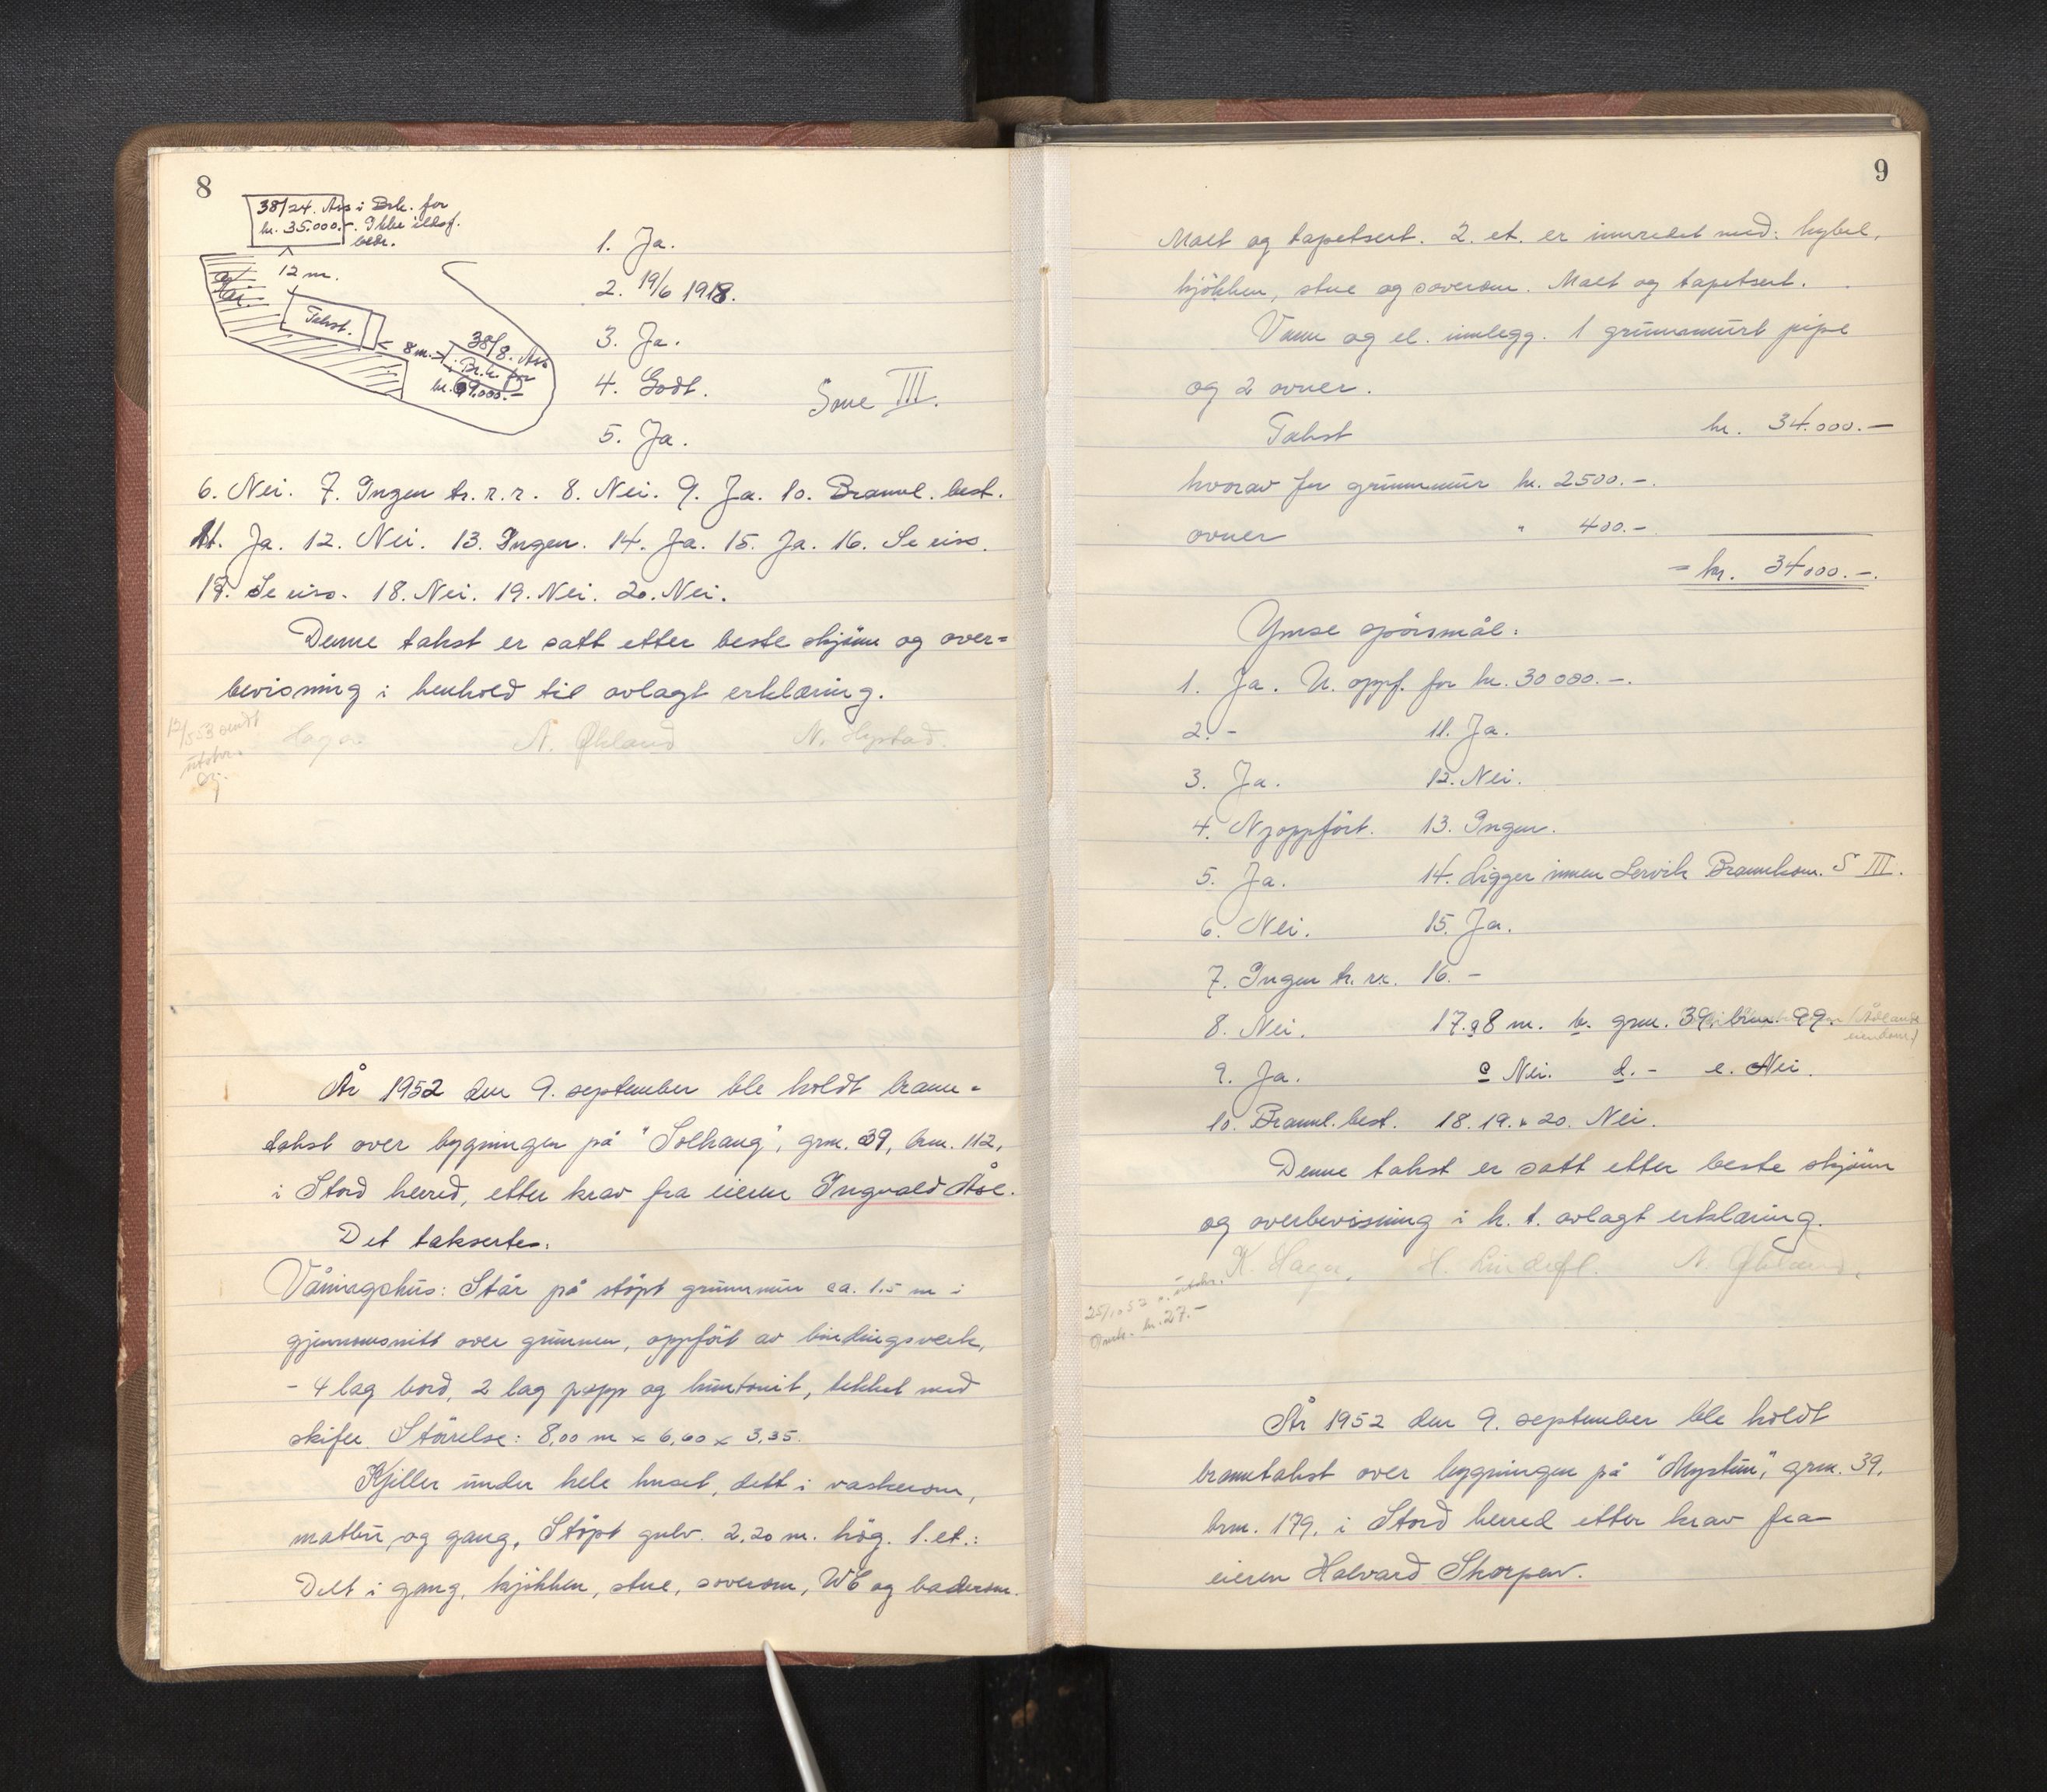 8
38/24. Ass i Brk. for
kr. 35.000.-. Ikke ildsf.
bedr.
12 m.
Takst.
8 m.
38/8. Ass
i Br.k. for
kr. 69.000.-
1. Ja.
2. 19/6 1918.
3. Ja.
4. Godt.
Sone III.
5. Ja.
6. Nei. 7. Ingen tr. r. r. 8. Nei. 9. Ja. 10. Brannl. best.
11. Ja. 12. Nei. 13. Ingen. 14. Ja. 15. Ja. 16. Se riss.
17. Se riss. 18. Nei. 19. Nei. 20. Nei.
Denne takst er satt etter beste skjönn og over=
bevisning i henhold til avlagt erklæring.
12/5 53 sendt
utskr.
Haga. A. Økland N. Hystad.
År 1952 den 9. september ble holdt brann-
takst over bygningen på "Solhaug", grn. 39, brn. 112,
i Stord herred, etter krav fra eieren Ingvald Åse.
Det taksertes:
Våningshus: Står på støpt grunnmur ca. 1.5 m i
gjennomsnitt over grunnen, oppfört av bindingsverk,
- 4 lag bord, 2 lag papp og huntonit, tekket med
skifer. Störrelse: 8,00 m x 6,60 x 3,35.
Kjeller under hele huset, delt i vaskerom,
matbu, og gang. Støpt gulv. 2,20 m. hög. 1. et.:
Delt i gang, kjökken, stue, soverom, WC og baderom.
9
Malt og tapetsert. 2. et. er innredet med: hybel,
kjökken, stue og soverom. Malt og tapetsert.
Vann og el. innlegg. 1 grunnmurt pipe
og 2 ovner.
Takst kr. 34.000.-
hvorav for grunnmur kr. 2500.-.
ovner " 400.-
= kr. 34000.-.
Ymse spörsmål:
1. Ja. N. oppf. for kr. 30000.-.
2. - 11. Ja.
3. Ja. 12. Nei.
4. Nyoppfört. 13. Ingen.
5. Ja. 14. Ligger innen Lervik Brannkom. S III.
6. Nei. 15. Ja.
7. Ingen tr. r.r. 16. -
8. Nei. 17. a 8 m. b. grn. 39, brn. 99. (Ådlands
eiendom)
9. Ja. c Nei. d. - e. Nei.
10. Brannl. best. 18. 19. & 20. Nei.
Denne takst er satt etter beste skjönn
og overbevissning i h. t. avlagt erklæring.
K. Haga. H. Lindefl. A. Økland.
25/10 52 s. utskr.
Omk. kr. 27.-
År 1952 den 9. september ble holdt
branntakst over bygningen på "Mystun", grn. 39,
brn. 179, i Stord herred etter krav fra
eieren Halvard Skorpen.